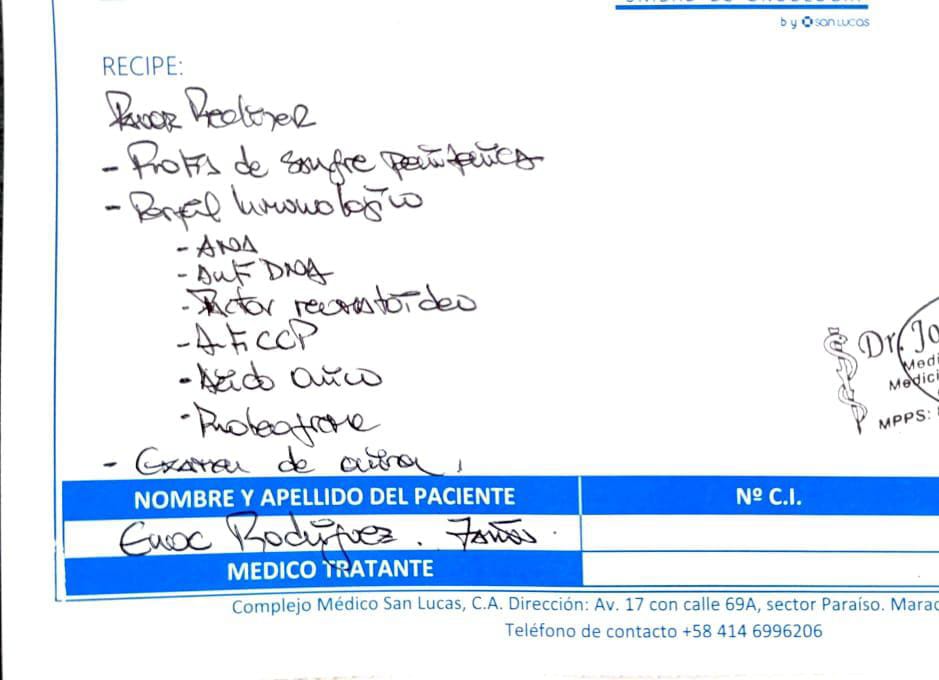 by SANLUCAS
RECIPE:
Favor Realizar
- Frotis de sangre periferica
- Perfil Inmunologico
- ANA
- Anti DNA
- Factor reumatoideo
- Anti CCP
- Acido urico
- Proteograma
- Examen de orina
Dr. Jo
Medi
Medici
MPPS:
NOMBRE Y APELLIDO DEL PACIENTE
Nº C.I.
Enoc Rodriguez. 7años.
MEDICO TRATANTE
Complejo Médico San Lucas, C.A. Dirección: Av. 17 con calle 69A, sector Paraíso. Marac
Teléfono de contacto +58 414 6996206